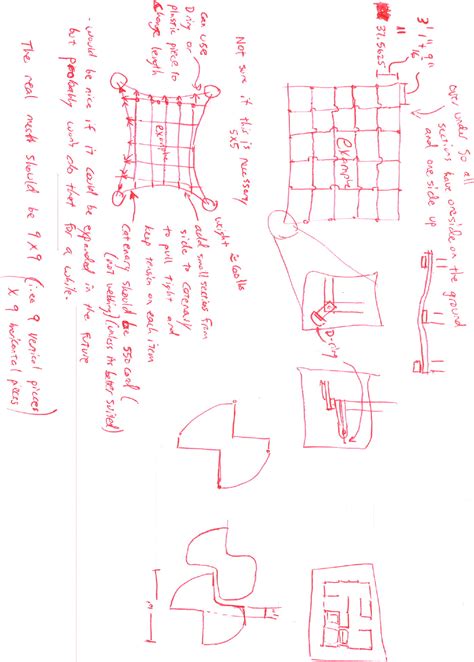 3' 1" + 9/16"
37.5625
1"
over under so all
sections have one side on the ground
and one side up
example
D-ring
Not sure if this is necessary
5x5
can use
D ring or
plastic piece to
change length
example
weight
add small sections from
side to catenary
to pull tight and
keep tension on each item
Catenary should be 550 cord (
(not webbing) (unless its better suited)
· would be nice if it could be expanded in the future
but probably wont do that for a while.
The real mesh should be 9x9 (i.e. 9 vertical pieces
x 9 horizontal pieces)
1"